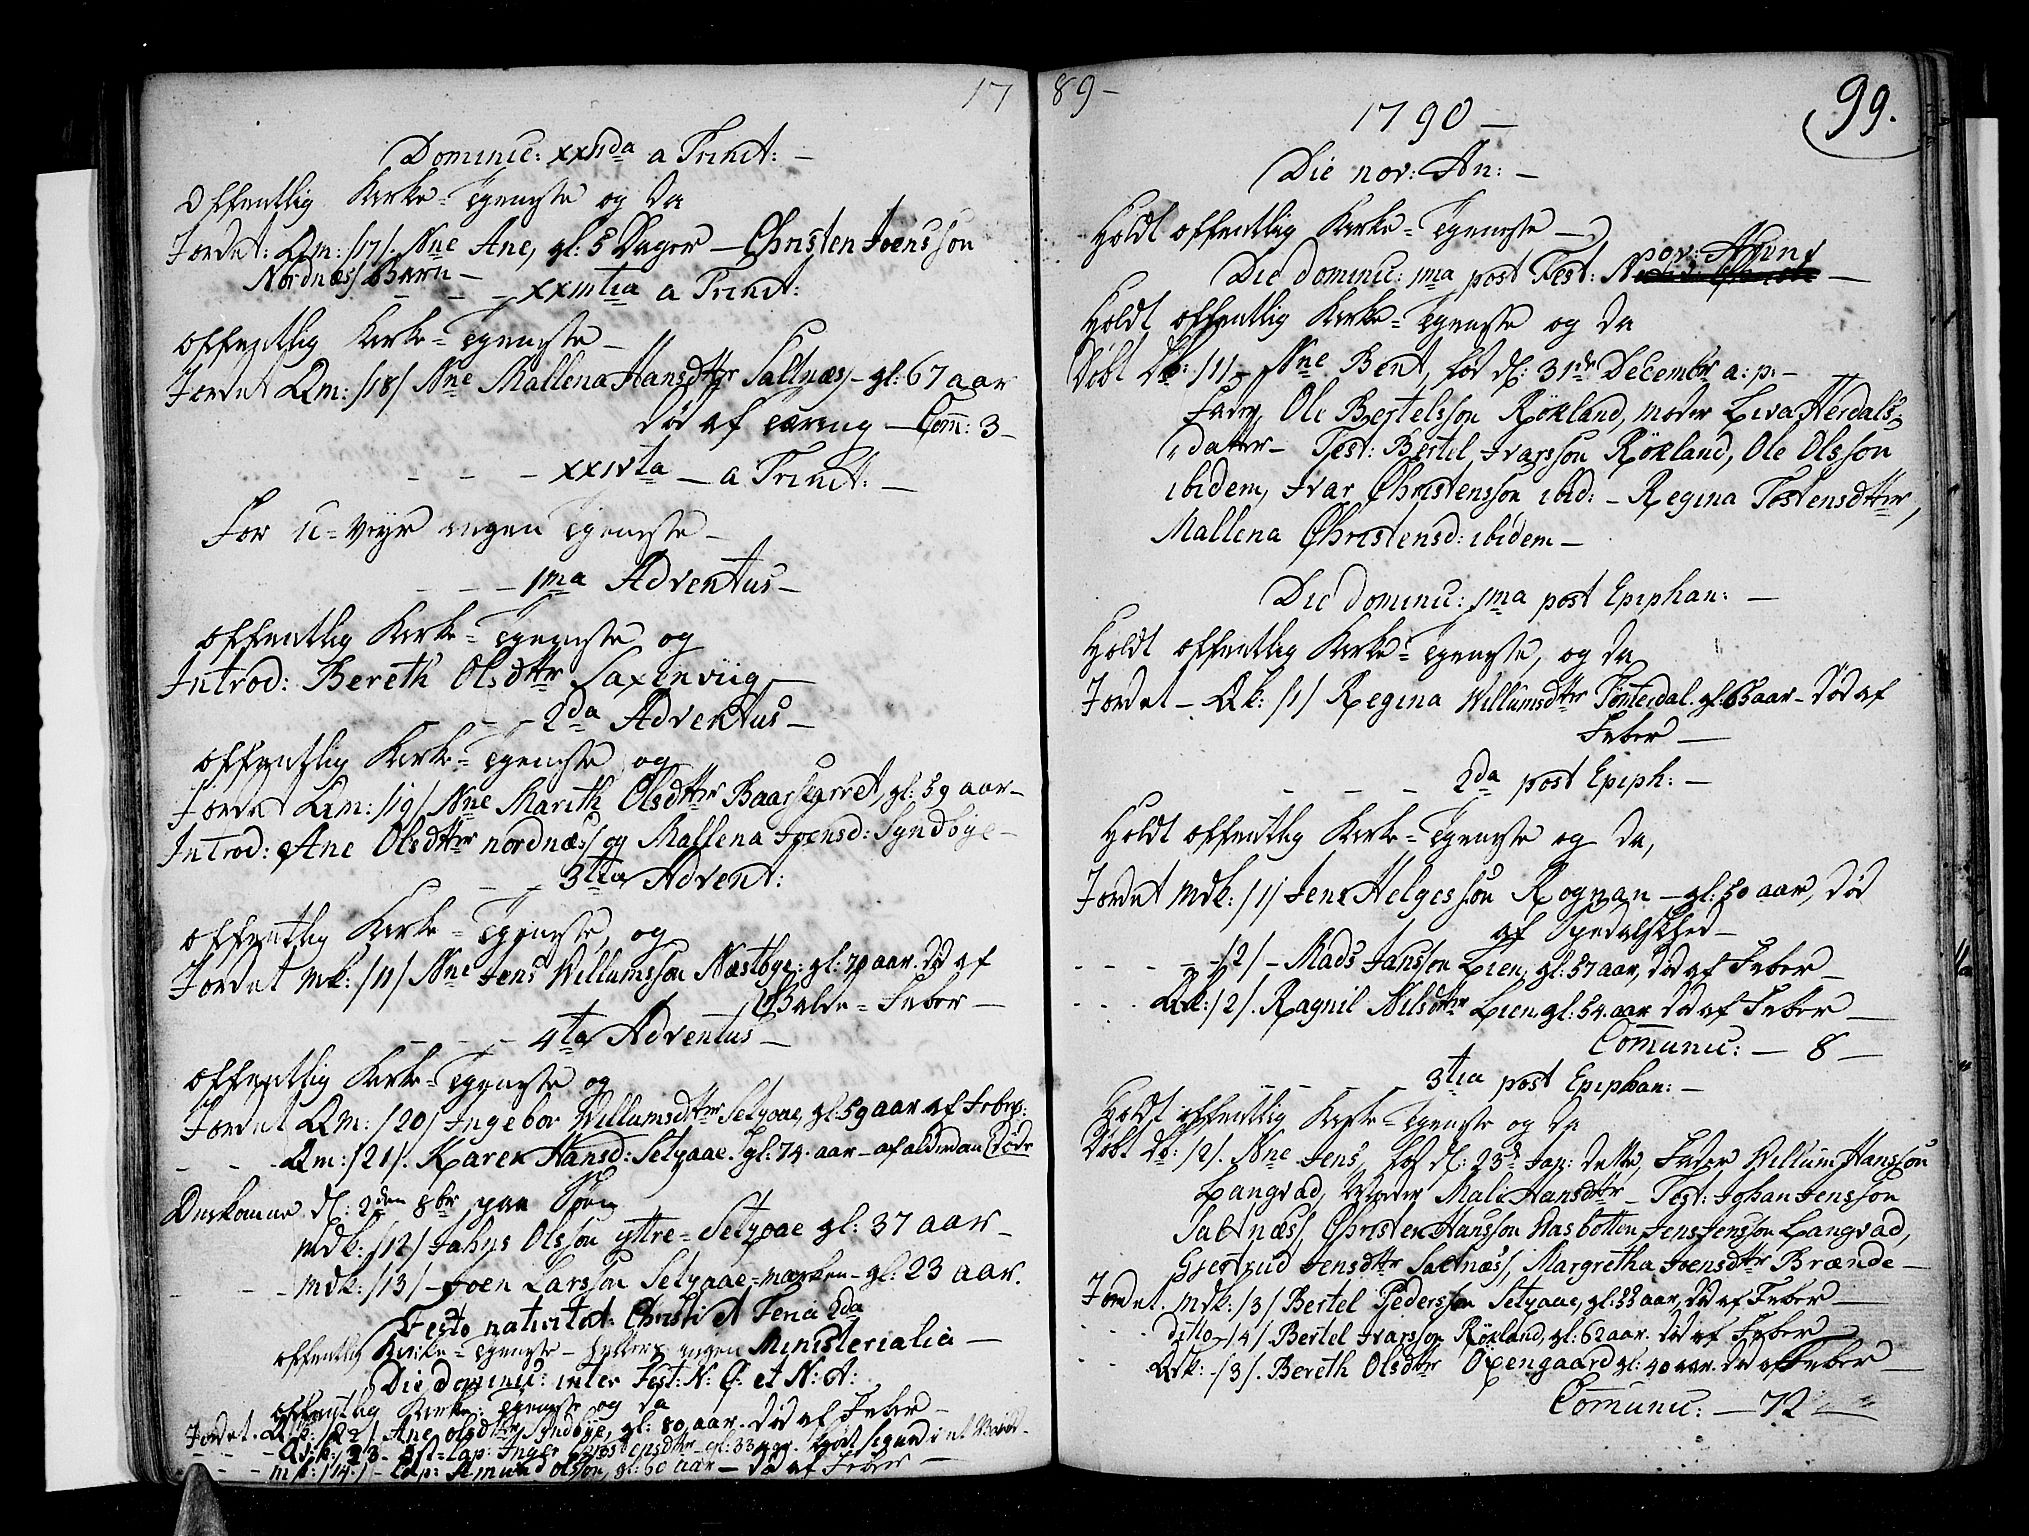 17
Dominic: xxiida a Trinit: –
Offentlig Kirke-Tjeneste og da
Jordet: Qm: /17/. Nne Ane, gl: 5 Dager – Christen Joensson
Nordnæs/ Barn –
– – – xxiiitia a Trinit:
Offentlig Kirke-Tjeneste –
Jordet Qm: /18/ Nne Mallena Hansdttr Saltnæs/ – gl: 67 aar
død af tæring – Com: 3 –
– – – xxivta – a Trinit: –
For u-veyr ingen Tjeneste –
– – – 1ma Adventus –
Offentlig Kirke-Tjeneste og
Introd: Bereth Olsdttr Saxenviig –
– – – 2da Adventus –
Offentlig Kirke-Tjeneste og
Jordet Qm: /19/ Nne Marith Olsdttr Baar, gl: 59 aar –
Introd: Ane Olsdttr nordnæs/ og Mallena Joensd: Syndbye –
– – 3tia Advent:
Offentlig Kirke-Tjeneste, og
Jordet Mk: /11/ Nne Jens Willumsson Næstbye: gl: 70 aar. død af
Galde-Feber –
– – – 4ta Adventus –
Offentlig Kirke-Tjeneste og
Jordet Qm: /20/ Ingebor Willumsdttr Setzaae, gl: 59 aar af Feber:
– – – Qm: /21/. Karen Hansd: Setzaae. gl: 74. aar – af alderdom døde
Omkomne d: 2den 8br paa Søen
Mdk: /12/ Johns Olsson yttre-Setzaae gl: 37 aar –
– – – Mdk: /13/ – Joen Larsson Setzaae-marken – gl: 23 aar.
Festo nativitat: Christi et Feria 2da
Offentlig Kirke-Tjeneste – ellers ingen Ministerialia –
Die dominic: inter Fest: N: C: et N: A:
Offentlig Kirke-Tjeneste og da
Jordet. Qvk: /22/ Ane Olsdttr Syndbye, gl: 80 aar. død af Feber –
– – Qvk: 23 – Lap: Inger Christensdttr – gl: 33 aar.
– – – mk: /14./ – Lap: Amund Olsson, gl: 60 aar – død af Feber –
89 –
99.
1790 –
Die nov: An: –
Holdt offentlig Kirke-Tjeneste –
nov: Anni
Die dominic: 1ma post Fest: –
Holdt offentlig Kirke-Tjeneste og da
Døbt Db: /1/ – Nne Bent, fød d: 31de Decembr a: p: –
Fader, Ole Bertelsson Rökland, moder Liva Herdals-
datter – Test: Bertel Ivarsson Rökland, Ole Olsson
ibidem, Ivar Christensson ibid: – Regina Tostensdttr,
Mallena Christensd: ibidem –
Die dominic: 1ma post Epiphan: –
Holdt offentlig Kirke-Tjeneste, og da
Jordet – Qk: /1/ Regina Willumsdttr Tömerdal. gl: 63 aar – død af
Feber –
– – – 2da post Epiph: –
Holdt offentlig Kirke-Tjeneste og da,
Jordet Mdk: /1/ Jens Helgesson Rognan – gl: 50 aar, død
af Spedalskhed –
– – – – /2/ – Mads Jansson Lien, gl: 57 aar, død af Feber –
– – – Qk: /2/. Ragnil Nilsdttr Lien. gl: 54. aar død af Feber –
Comunic: – 8 –
– – – 3tia post Epiphan: –
Holdt offentlig Kirke-Tjeneste og da
Døbt db: /2/. Nne Jens, fød d: 23d Jan: dette, Fader Willum Hansson
Langvad, Moder Mali Hansdttr – Test: Johan Jensson
Saltnæs/, Christen Hansson Nasbotten Jens Jensson Langvad,
Giertrud Jensdttr Saltnæs/, Margretha Joensdttr Brænde –
Jordet. Mdk: /3/ Bertel Pedersson Setzaae, gl: 38 aar, død af Feber –
– – – ditto /4/ Bertel Ivarsson Rökland, gl: 62 aar. død af Feber –
– – Qdk: /3/. Bereth Olsdttr Oxengaard gl: 40 aar. død af Feber –
Comunic: – 72 –